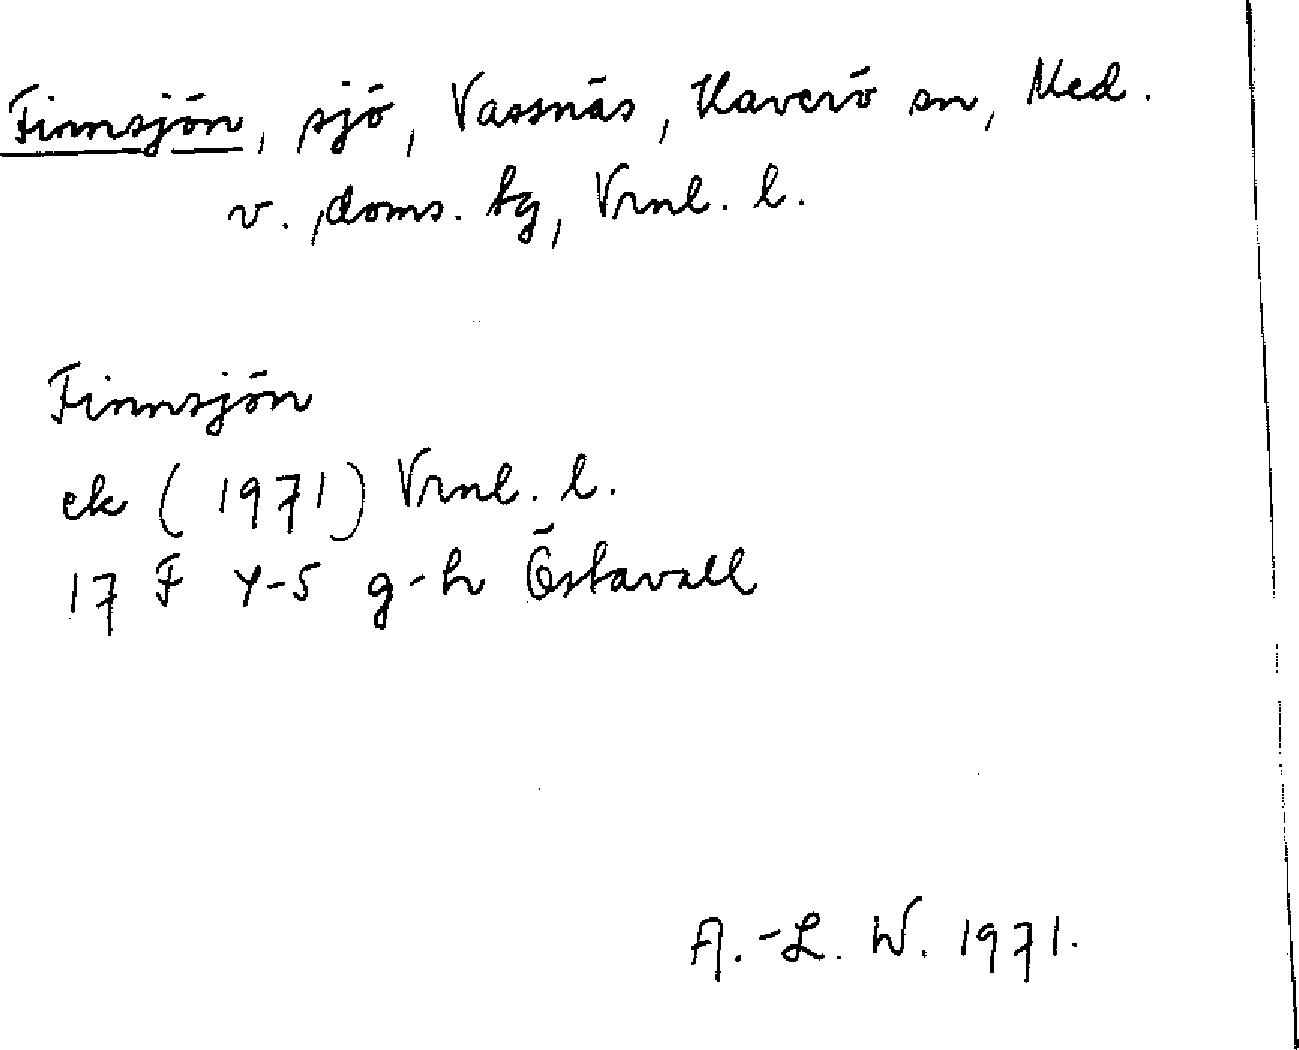 Finnsjön, sjö, Vassnäs, Haverö sn, Med.
v. doms. tg, Vrnl. l.
Finnsjön
ek (1971) Vrnl. l.
17 F 4-5 g-h Östavall
A.-L. W. 1971.